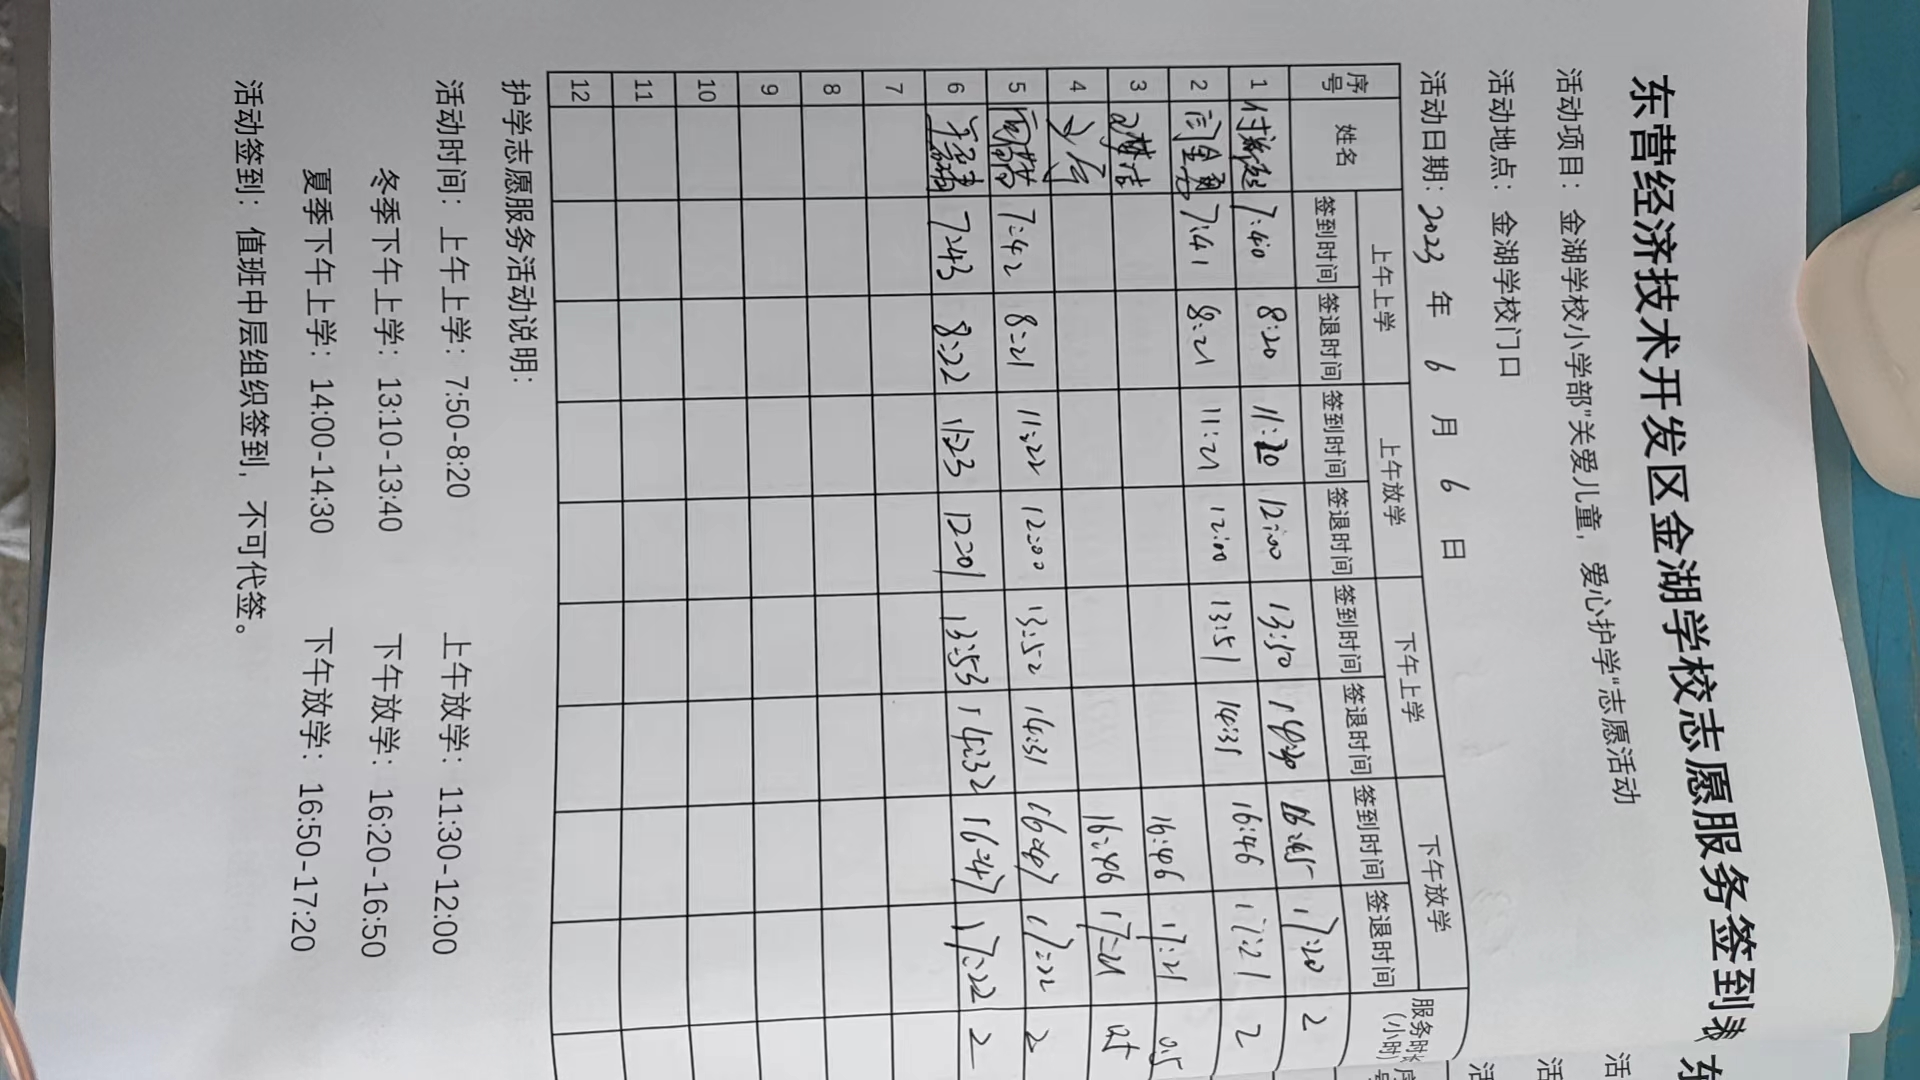 东营经济技术开发区金湖学校志愿服务签到表
活动项目：金湖学校小学部"关爱儿童，爱心护学"志愿活动
活动地点：金湖学校门口
活动日期：2023 年 6 月 6 日
序号 姓名 上午上学 上午放学 下午上学 下午放学 服务时长(小时)
签到时间 签退时间 签到时间 签退时间 签到时间 签退时间 签到时间 签退时间
1 7:40 8:20 11:20 12:00 13:50 14:30 16:45 17:20 2
2 7:41 8:21 11:21 12:00 13:51 14:31 16:46 17:21 2
3 16:46 17:21 0.5
4 16:46 17:21 0.5
5 7:42 8:21 11:22 12:00 13:52 14:31 16:47 17:22 2
6 7:43 8:22 11:23 12:01 13:53 14:32 16:47 17:22 2
7
8
9
10
11
12
护学志愿服务活动说明：
活动时间：上午上学：7:50-8:20 上午放学：11:30-12:00
冬季下午上学：13:10-13:40 下午放学：16:20-16:50
夏季下午上学：14:00-14:30 下午放学：16:50-17:20
活动签到：值班中层组织签到，不可代签。
东
活
活
活
序号